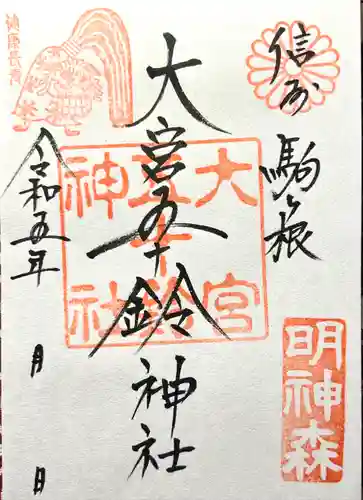 信州
駒ヶ根
明神森
大宮五十鈴神社
大宮
五十鈴
神社
健康長寿
令和五年
月
日